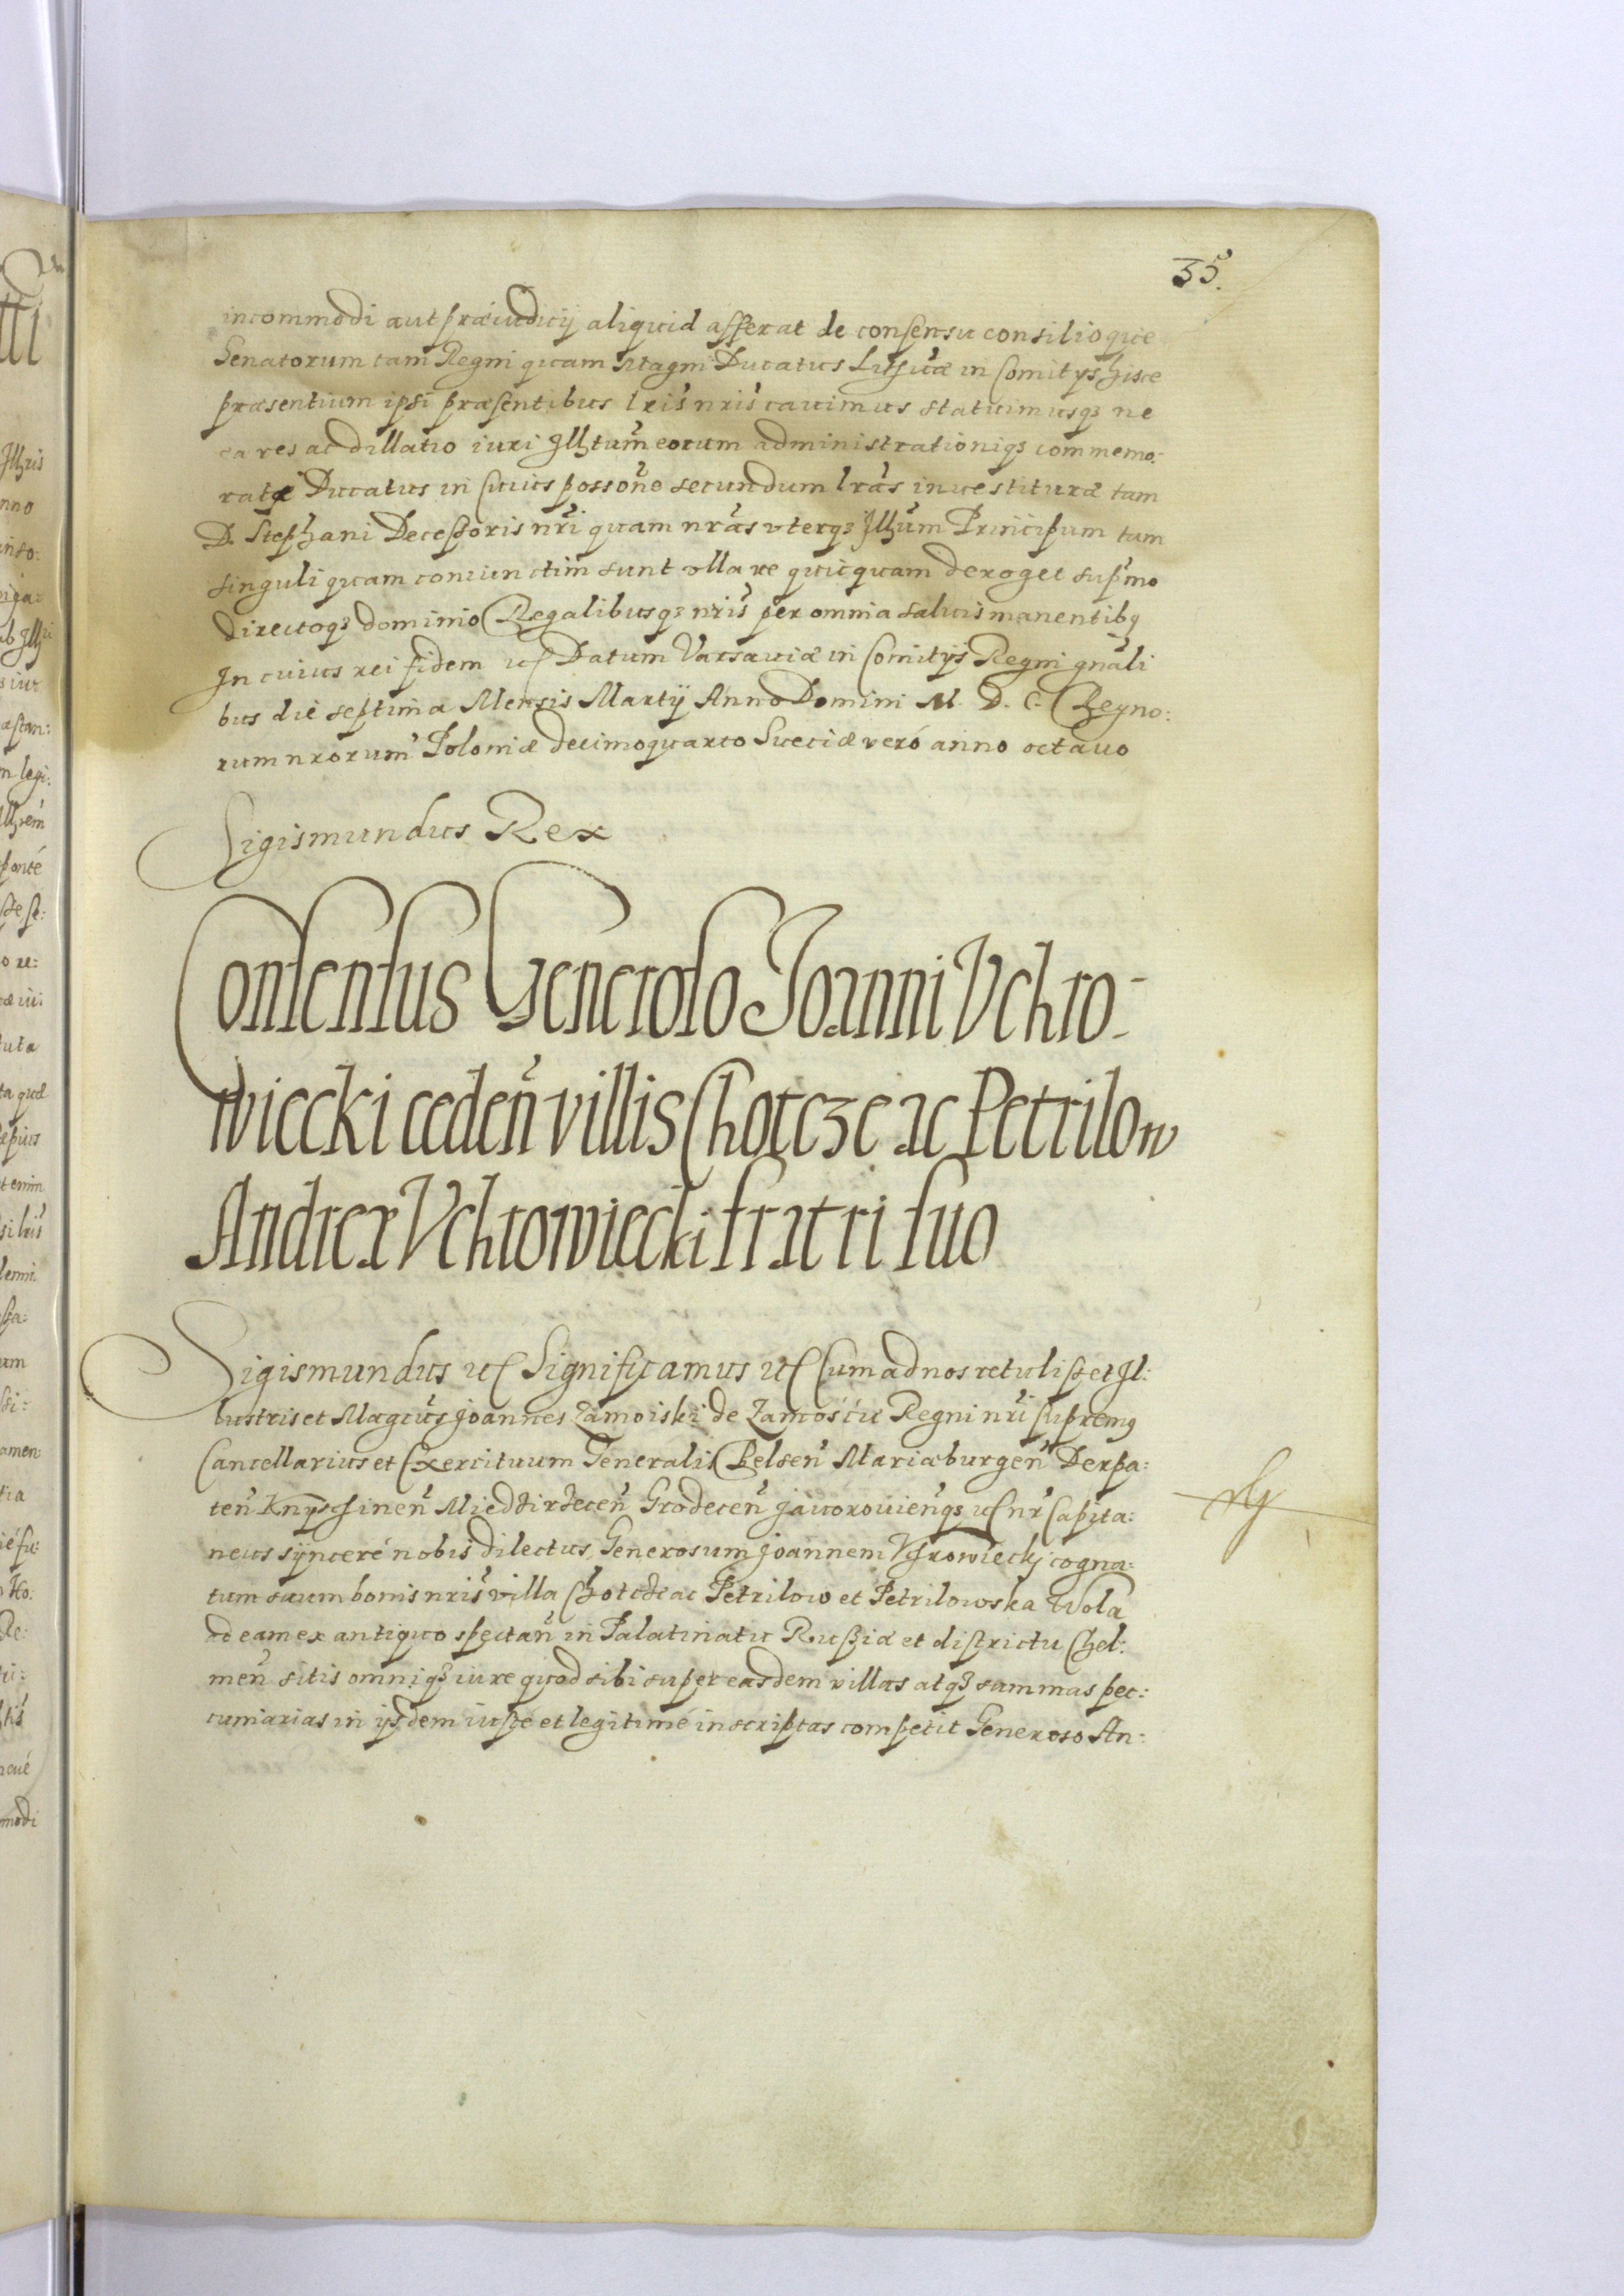 35.
incommodi aut præiudicij aliquid afferat de consensu consilioque
Senatorum tam Regni quam Magni Ducatus Lithuæ in Comitijs hisce
præsentium ipsi præsentibus lris nris cauimus statuimusq3 ne
ea res ac dillatio iuri Illtum eorum administrationiq3 commemo:
ratæ Ducatus in cuius possone secundum lras inuestituræ tam
D. Stephani Decessoris nri quam nras vterq3 Illum Principum tam
singuli quam coniunctim sunt vlla re quicquam deroget supmo
directoq3 dominio Regalibusq3 nris per omnia saluis manentibq
In cuius rei fidem etc Datum Varsauiæ in Comitijs Regni gnali
bus die septima Mensis Martij Anno Domini M. D. C. Regno:
rum nrorum Poloniæ decimoquarto Sueciæ veró anno octauo
Sigismundus Rex
Consensus Generoso Joanni Vchro-
wiecki ceden villis Chotcze ac Petrilow
Andreæ Vchrowiecki fratri suo
Sigismundus etc Significamus etc Cum ad nos retulisset Il:
lustris et Magcus Joannes Zamoiski de Zamoście Regni nri supremq
Cancellarius et Exercituum Generalis Belsen Mariæburgen Derpa:
ten Knyschinen Miedzirzecen Grodecen Jaworouienq3 etc nr Capita:
neus synceré nobis dilectus, Generosum Joannem Vhrowieckj cogna:
tum suum bonis nris villa Chotcze ac Petrilow et Petrilowska Wola
ad eam ex antiquo spectan in Palatinatu Russiæ et districtu Chel:
men sitis omniq3 iure quod sibi super easdem villas atq3 summas pec:
cuniarias in ijsdem iusté et legitimé inscriptas competit Generoso An: